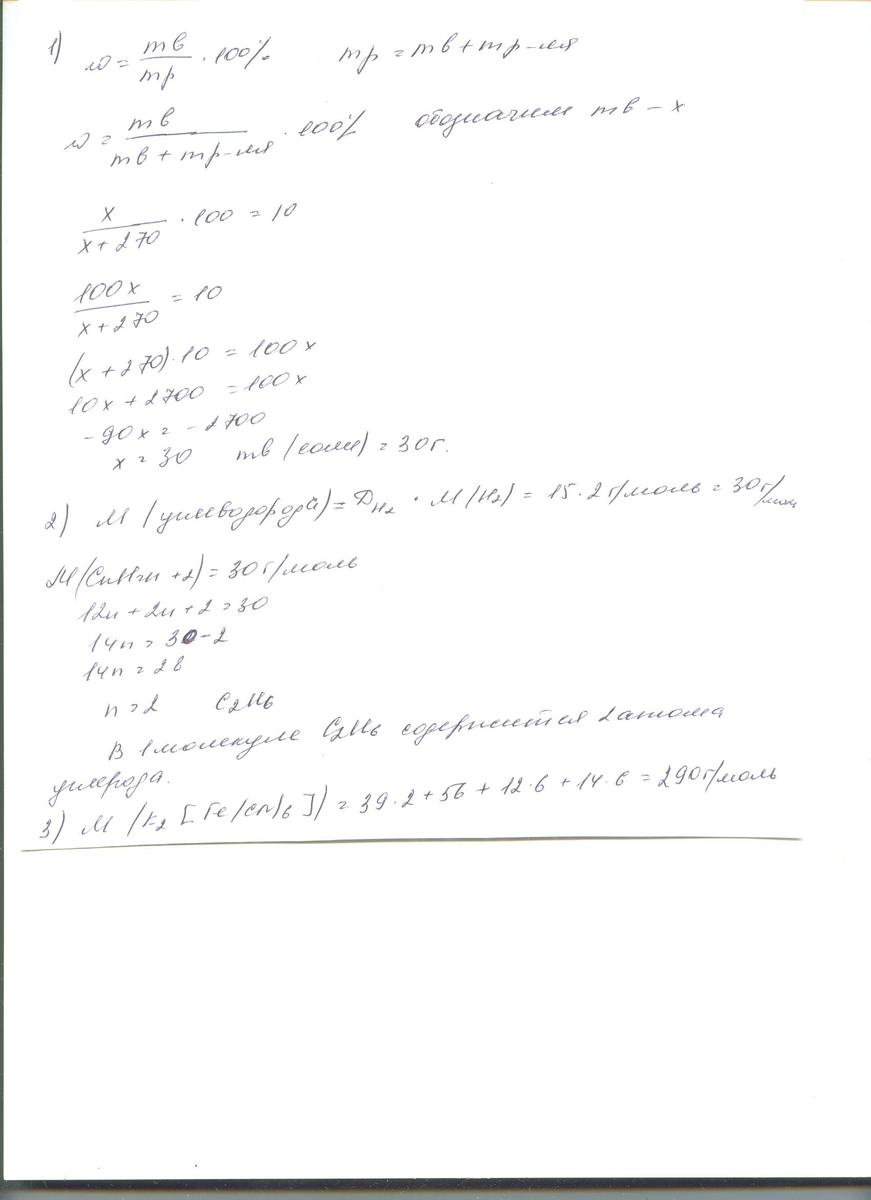 1) ω = mв/mр · 100% mр = mв + mр-ля
ω = mв/(mв + mр-ля) · 100% обозначим mв – x
x/(x + 270) · 100 = 10
100x/(x + 270) = 10
(x + 270) · 10 = 100x
10x + 2700 = 100x
-90x = -2700
x = 30 mв (соли) = 30г.
2) M (углеводорода) = D H₂ · M(H₂) = 15 · 2 г/моль = 30 г/моль
M(CnH2n + 2) = 30 г/моль
12n + 2n + 2 = 30
14n = 30 - 2
14n = 28
n = 2 C₂H₆
В 1 молекуле C₂H₆ содержится 2 атома
углерода.
3) M (K₂[Fe(CN)₆]) = 39·2 + 56 + 12·6 + 14·6 = 290 г/моль